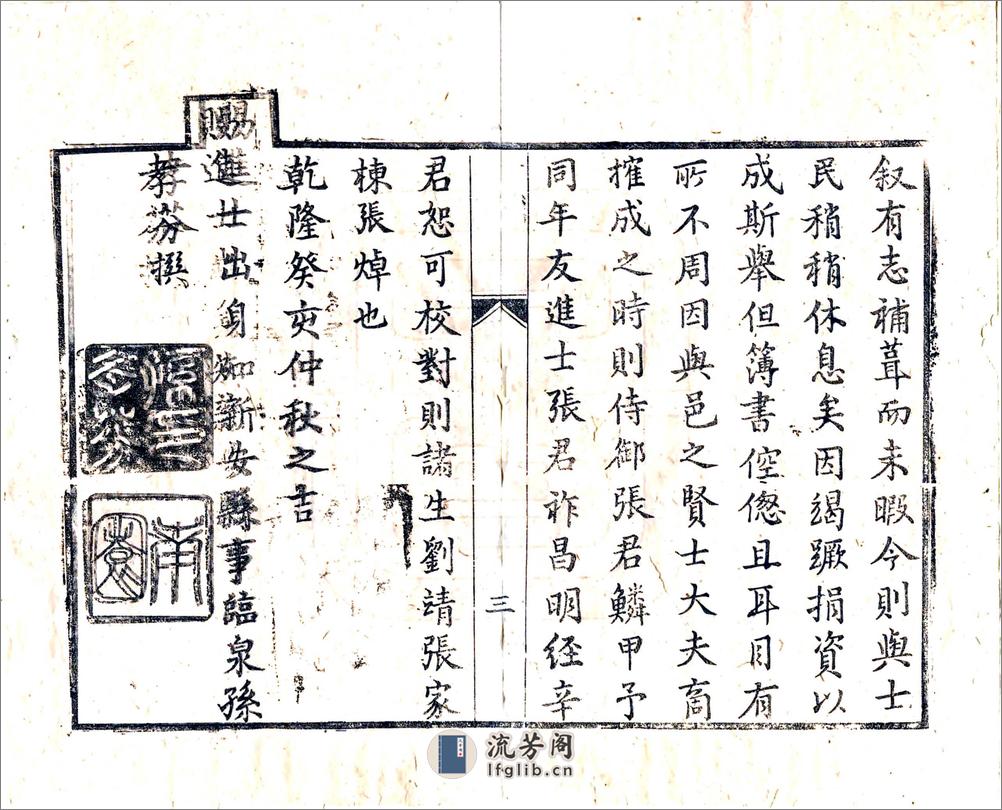 叙有志補葺而未暇今則與士
民稍稍休息矣因竭蹶捐資以
成斯舉但簿書倥偬且耳目有
所不周因與邑之賢士大夫商
搉成之時則侍御張君鱗甲予
同年友進士張君祚昌明經辛
三
君恕可校對則諸生劉靖張家
棟張焯也
乾隆癸亥仲秋之吉
賜進士出身知新安縣事臨泉孫
孝芬撰
流芳阁
lfglib.cn